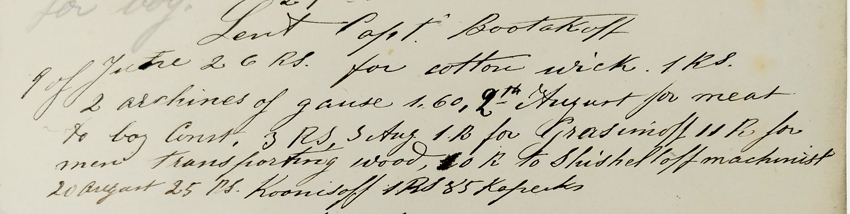 for boy.
Lent Capt. Bootakoff
9 of June 26 RS. for cotton wick. 1 RS.
2 archines of gause 1.60, 9th August for meat
to boy Const. 3 RS, 3 Aug 1 R for Grasimoff 11 R for
men transporting wood, 10 R to Shisheltoff machinist
20 August 25 RS. Koonisoff 1 RS 85 Kapecks